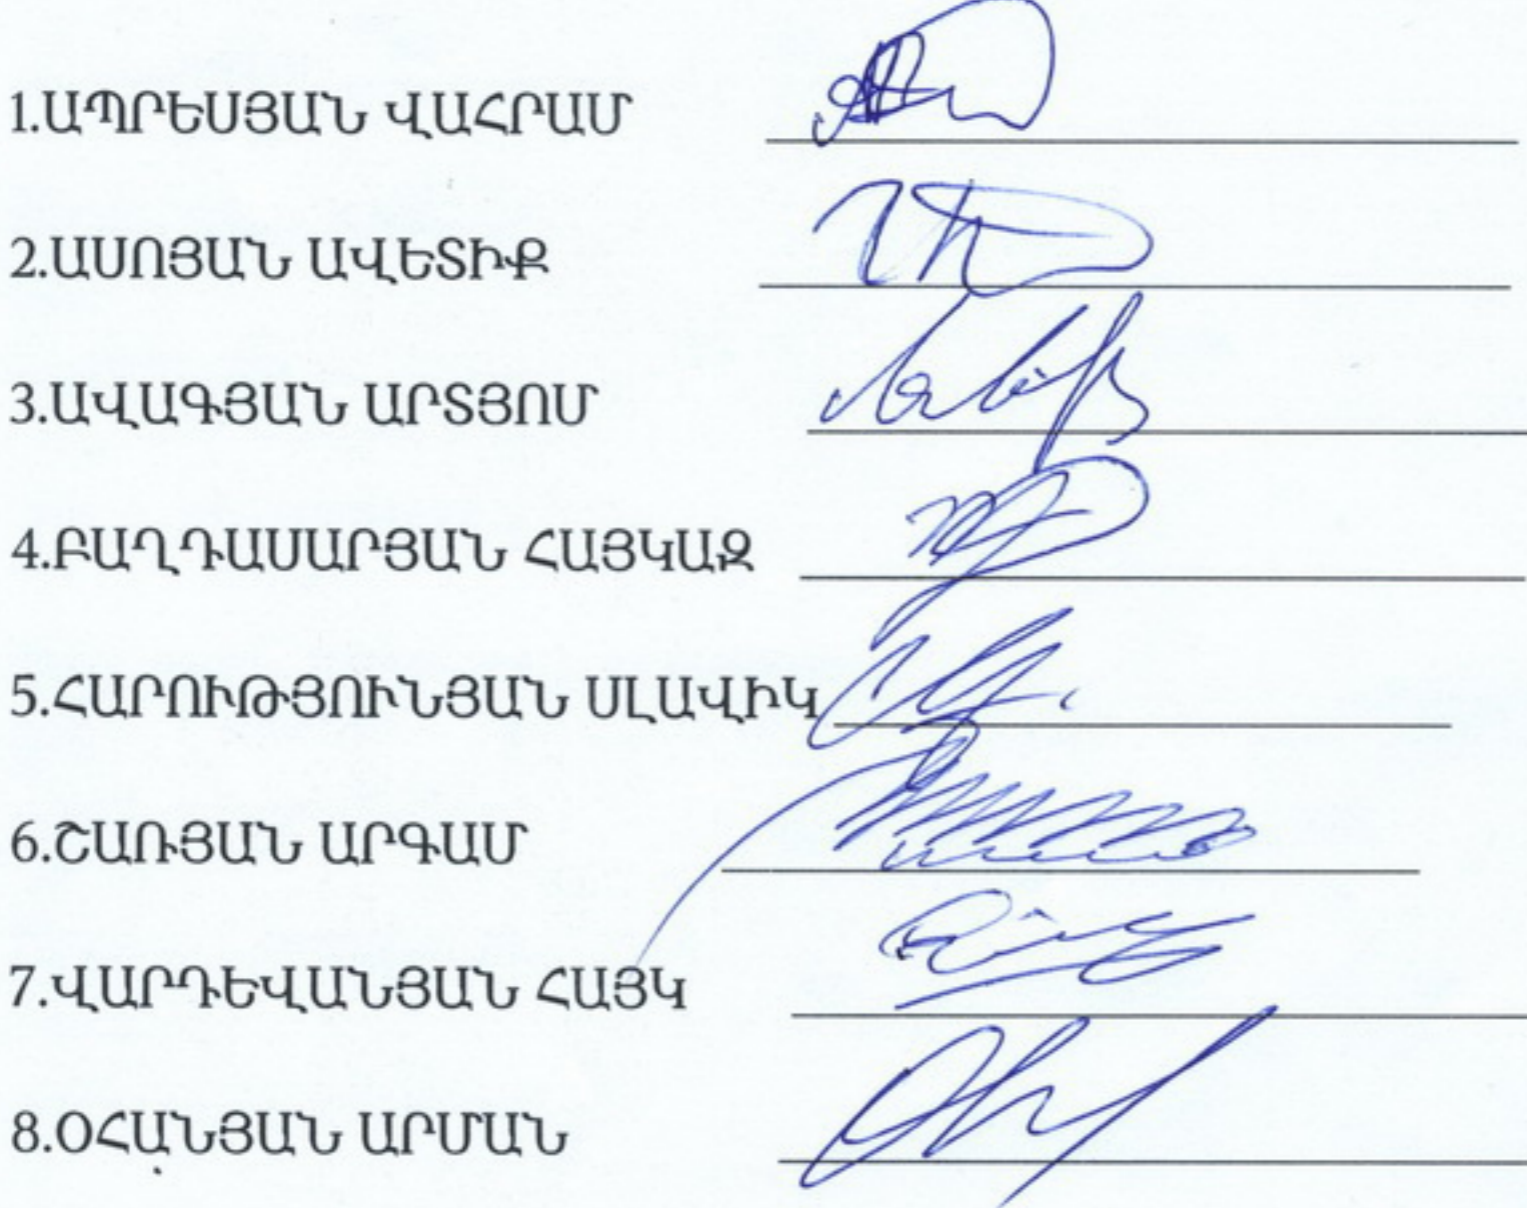 1.ԱՊՐԵՍՅԱՆ ՎԱՀՐԱՄ
2.ԱՍՈՅԱՆ ԱՎԵՏԻՔ
3.ԱՎԱԳՅԱՆ ԱՐՏՅՈՄ
4.ԲԱՂԴԱՍԱՐՅԱՆ ՀԱՅԿԱԶ
5.ՀԱՐՈՒԹՅՈՒՆՅԱՆ ՍԼԱՎԻԿ
6.ՇԱՌՅԱՆ ԱՐԳԱՄ
7.ՎԱՐԴԵՎԱՆՅԱՆ ՀԱՅԿ
8.ՕՀԱՆՅԱՆ ԱՐՄԱՆ